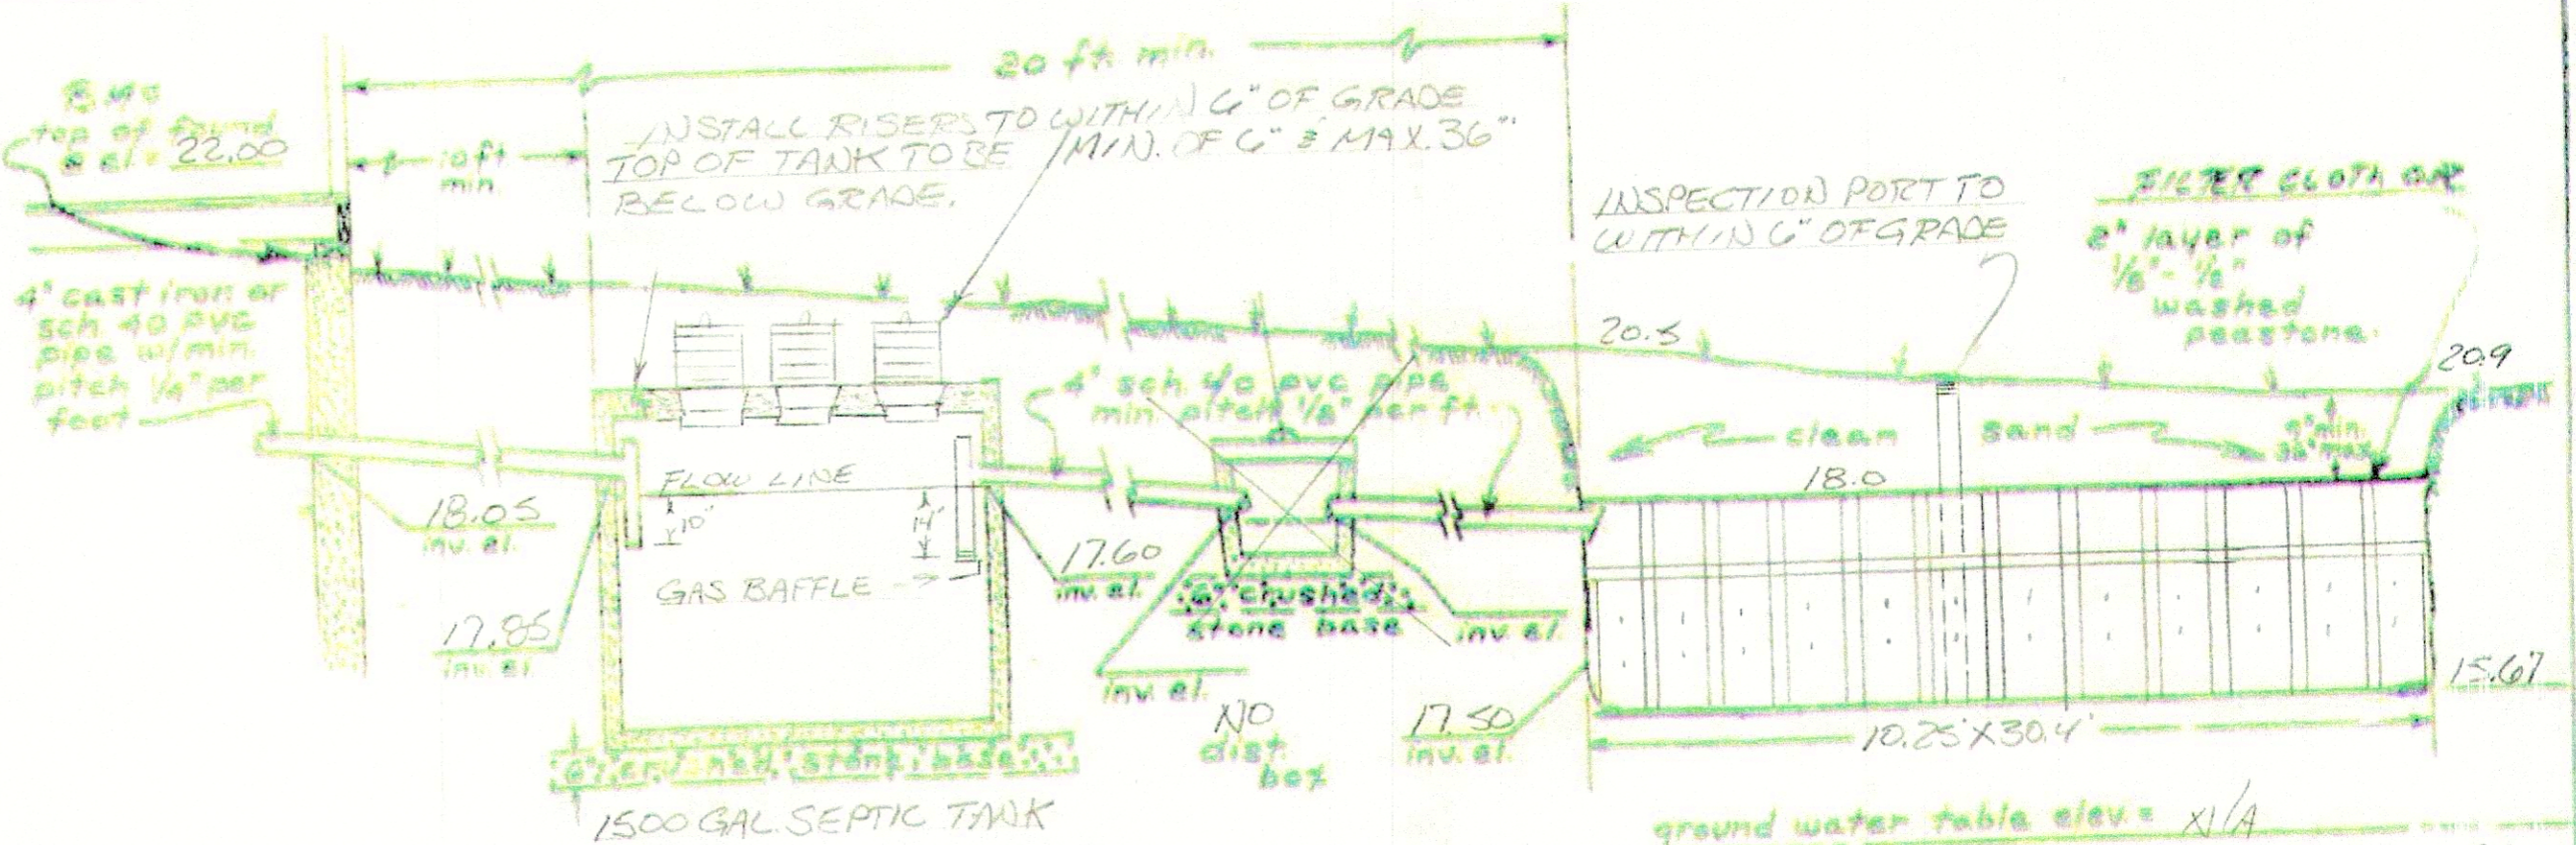 20 ft. min.
B.M.@
top of found.
@ el. = 22.00
10 ft
min.
INSTALL RISERS TO WITHIN 6" OF GRADE
TOP OF TANK TO BE MIN. OF 6" & MAX. 36"
BELOW GRADE.
INSPECTION PORT TO
WITHIN 6" OF GRADE
FILTER CLOTH
2" layer of
1/8" - 1/2"
washed
peastone.
4" cast iron or
sch. 40 PVC
pipe w/min.
pitch 1/4" per
foot
20.5
20.9
4" sch. 40 pvc pipe
min. pitch 1/8" per ft.
clean sand
9" min.
36" max.
18.0
FLOW LINE
10"
14"
GAS BAFFLE
18.05
inv. el.
17.85
inv. el.
17.60
inv. el.
6" crushed
stone base
inv. el.
inv. el.
NO
dist.
box
17.50
inv. el.
15.67
10.25' X 30.4'
6" crushed stone base
1500 GAL. SEPTIC TANK
ground water table elev. = N/A